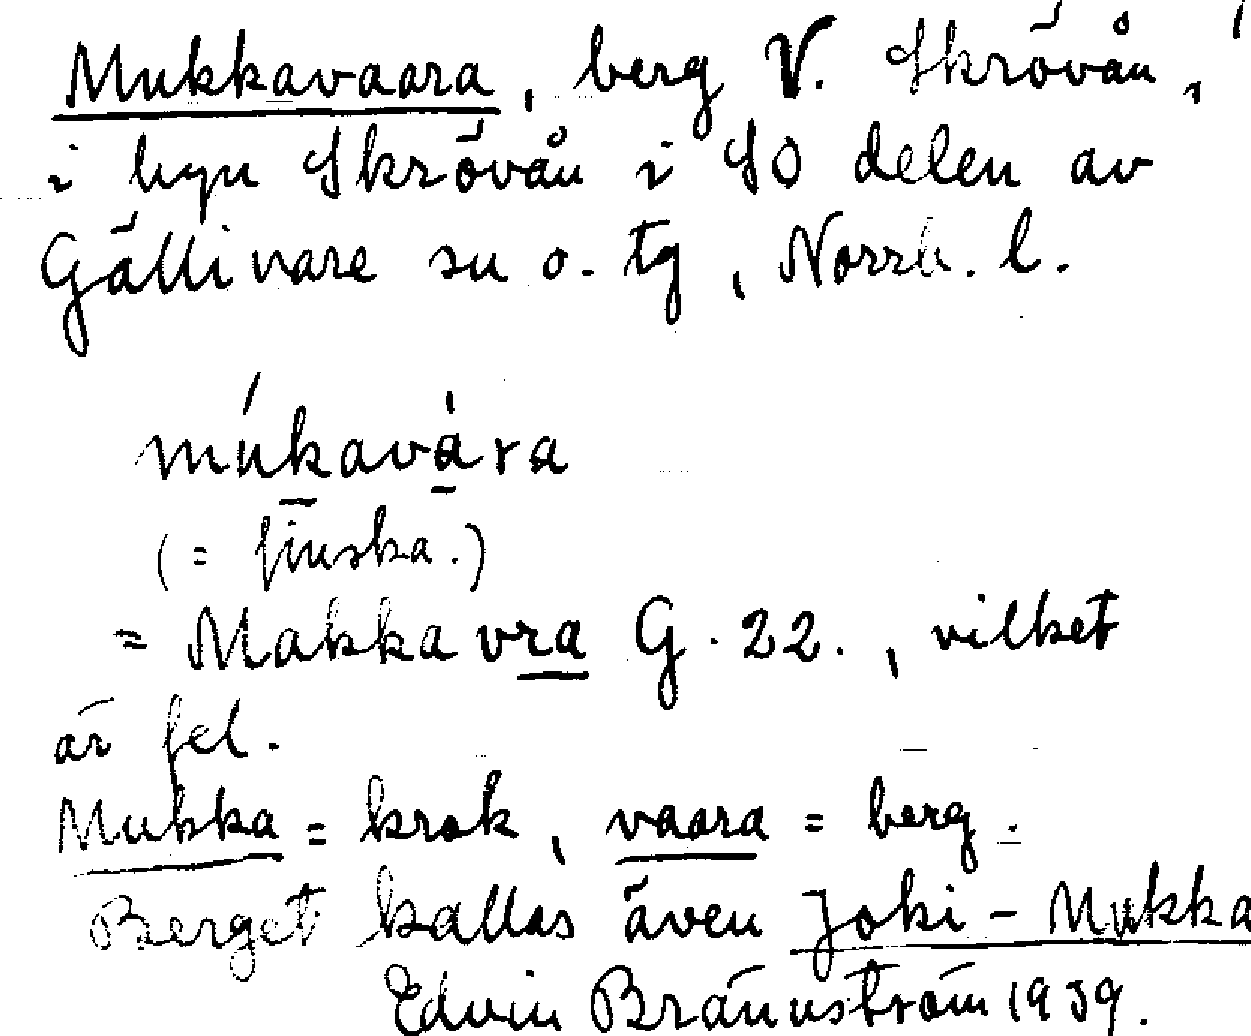 Mukkavaara, berg V. Skröván,
i byn Skrövån i SO delen av
Gällivare sn o. tg, Norrb. l.
múkavàra
(= finska.)
= Makkavra G. 22., vilket
är fel.
Mukka = krok, vaara = berg.
Berget kallas även Joki-Mukka
Edvin Brännström 1939.